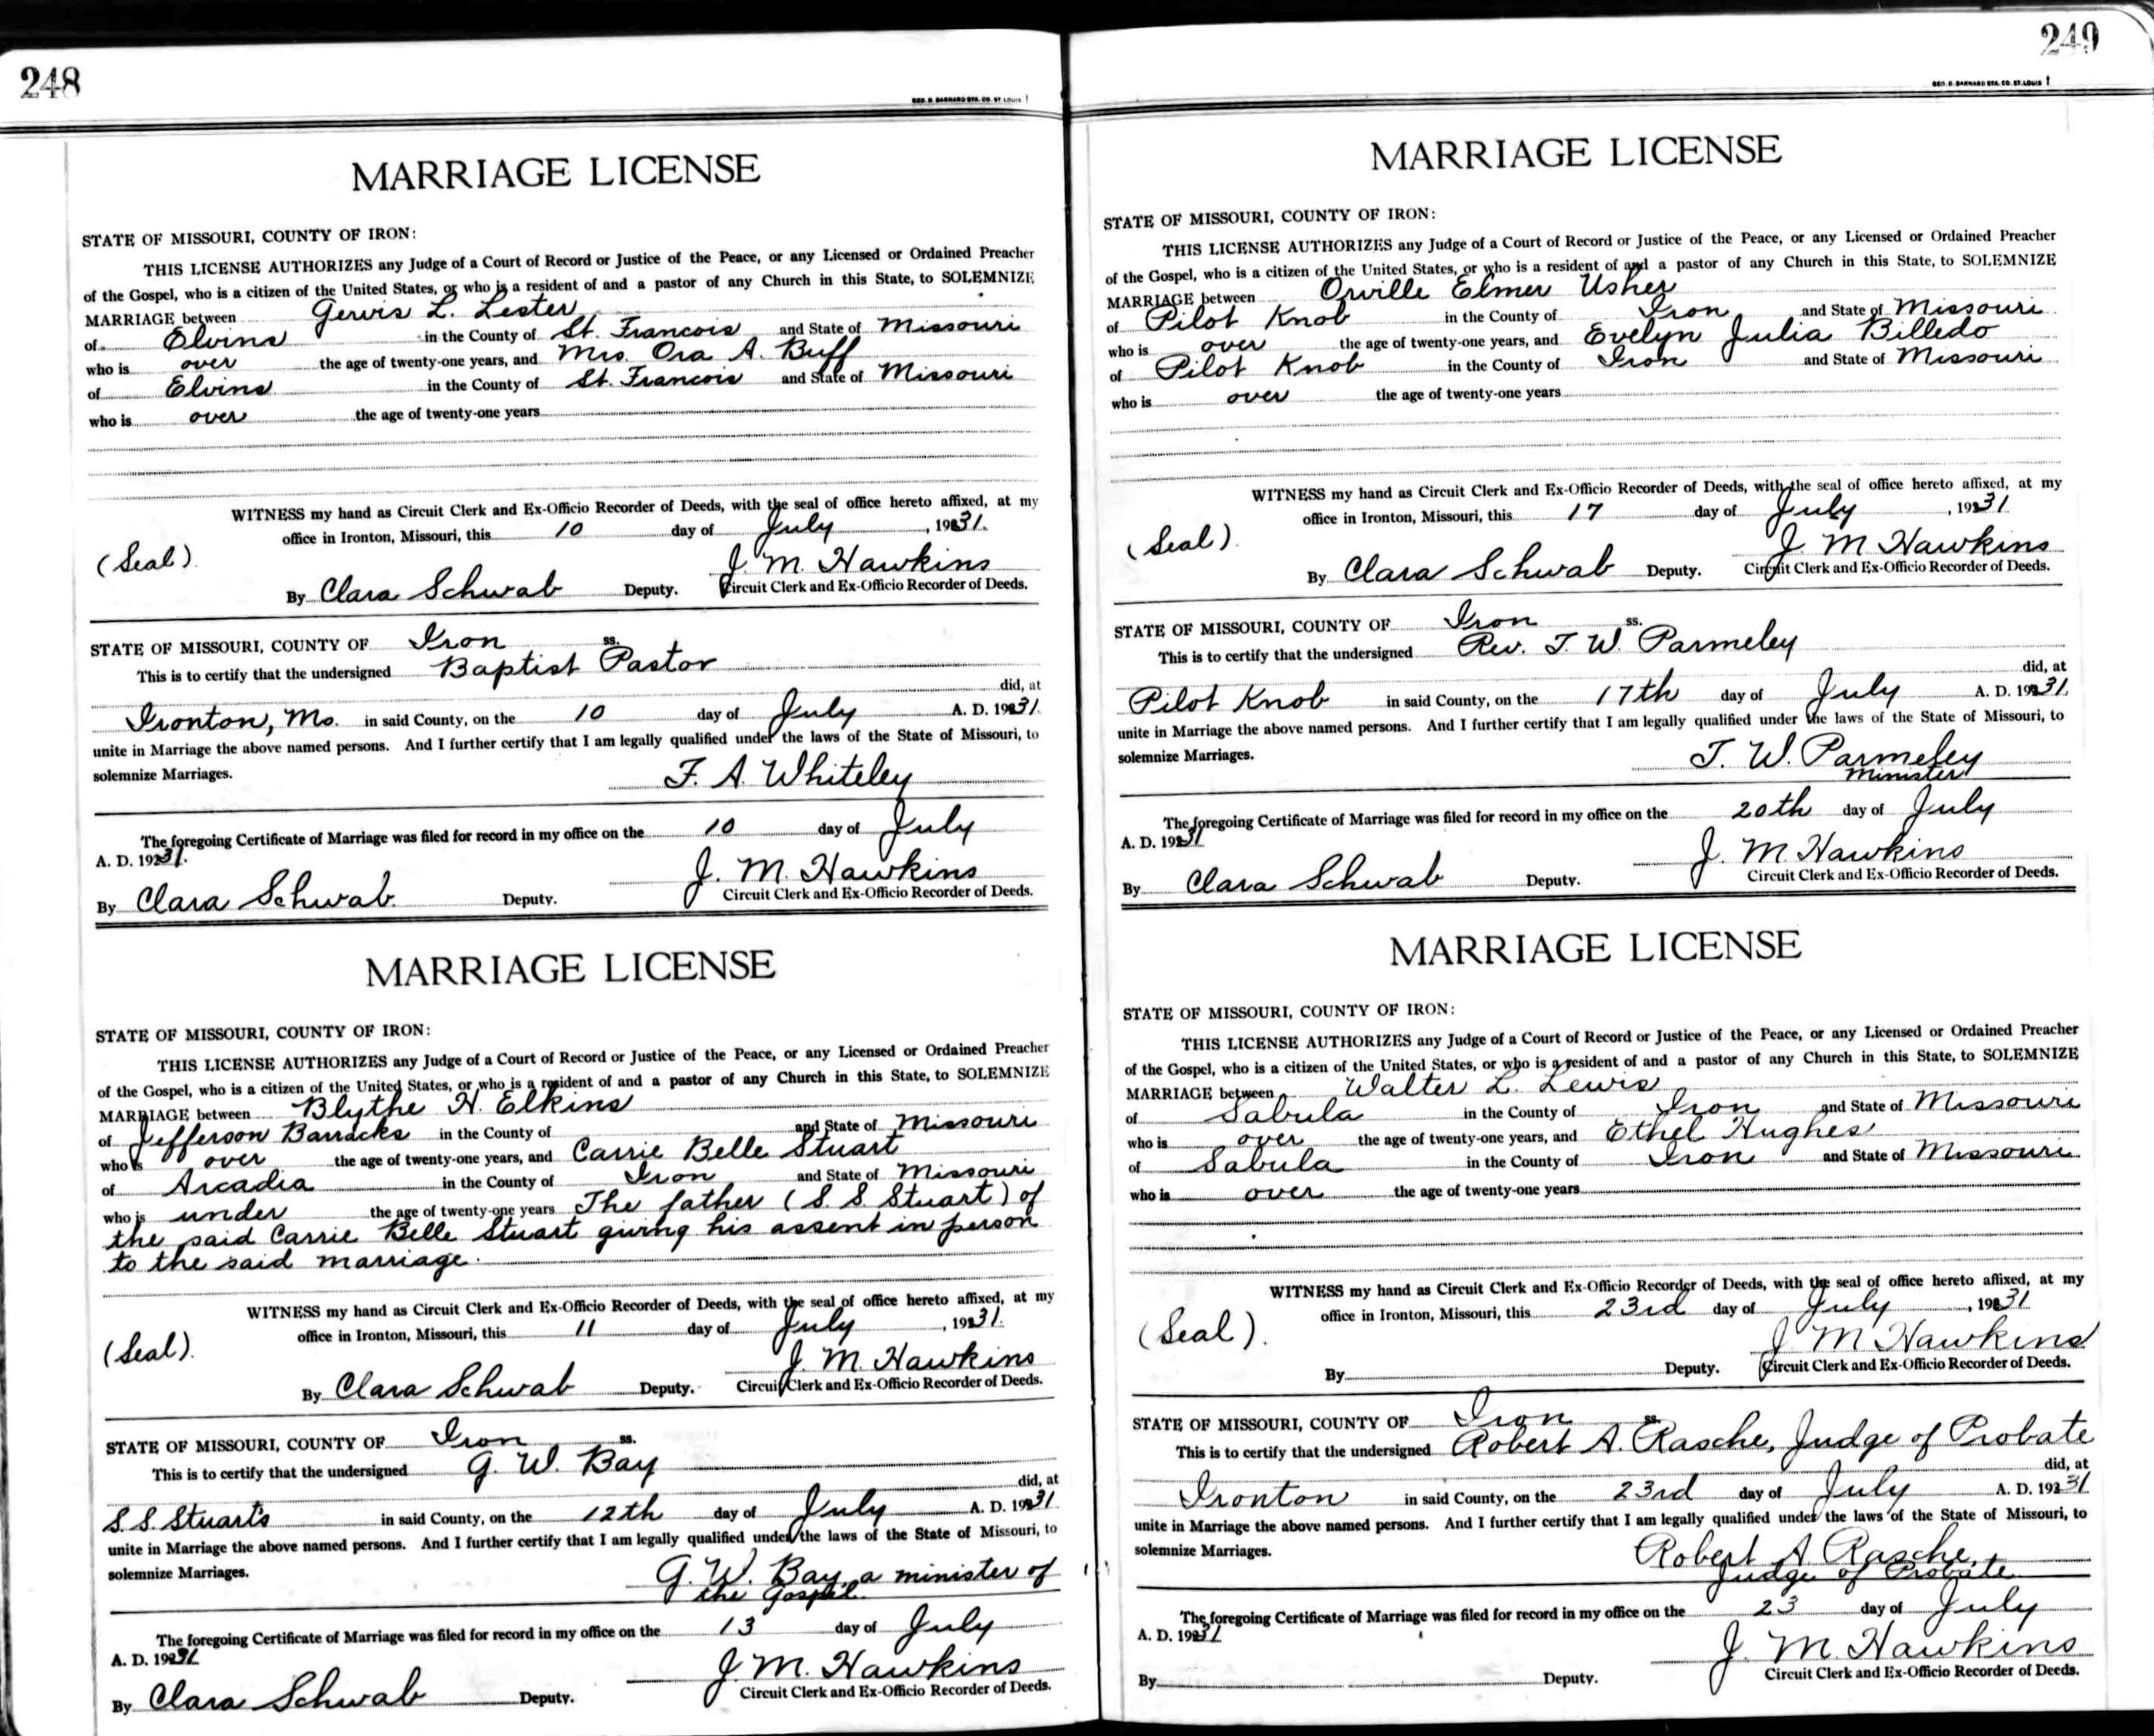 248
GEO. D. BARNARD STA. CO. ST. LOUIS
MARRIAGE LICENSE
STATE OF MISSOURI, COUNTY OF IRON:
THIS LICENSE AUTHORIZES any Judge of a Court of Record or Justice of the Peace, or any Licensed or Ordained Preacher
of the Gospel, who is a citizen of the United States, or who is a resident of and a pastor of any Church in this State, to SOLEMNIZE
MARRIAGE between Gervis L. Lester
of Elvins in the County of St. Francois and State of Missouri
who is over the age of twenty-one years, and Mrs. Ora A. Buff
of Elvins in the County of St. Francois and State of Missouri
who is over the age of twenty-one years
WITNESS my hand as Circuit Clerk and Ex-Officio Recorder of Deeds, with the seal of office hereto affixed, at my
office in Ironton, Missouri, this 10 day of July, 1931.
(Seal).
J. M. Hawkins
By Clara Schwab Deputy. Circuit Clerk and Ex-Officio Recorder of Deeds.
STATE OF MISSOURI, COUNTY OF Iron ss.
This is to certify that the undersigned Baptist Pastor
did, at
Ironton, Mo. in said County, on the 10 day of July A. D. 1931.
unite in Marriage the above named persons. And I further certify that I am legally qualified under the laws of the State of Missouri, to
solemnize Marriages.
F. A. Whiteley
The foregoing Certificate of Marriage was filed for record in my office on the 10 day of July
A. D. 1931.
J. M. Hawkins
By Clara Schwab. Deputy. Circuit Clerk and Ex-Officio Recorder of Deeds.
MARRIAGE LICENSE
STATE OF MISSOURI, COUNTY OF IRON:
THIS LICENSE AUTHORIZES any Judge of a Court of Record or Justice of the Peace, or any Licensed or Ordained Preacher
of the Gospel, who is a citizen of the United States, or who is a resident of and a pastor of any Church in this State, to SOLEMNIZE
MARRIAGE between Blythe H. Elkins
of Jefferson Barracks in the County of and State of Missouri
who is over the age of twenty-one years, and Carrie Belle Stuart
of Arcadia in the County of Iron and State of Missouri
who is under the age of twenty-one years The father (S. S. Stuart) of
the said Carrie Belle Stuart giving his assent in person
to the said marriage.
WITNESS my hand as Circuit Clerk and Ex-Officio Recorder of Deeds, with the seal of office hereto affixed, at my
office in Ironton, Missouri, this 11 day of July, 1931.
(Seal).
J. M. Hawkins
By Clara Schwab Deputy. Circuit Clerk and Ex-Officio Recorder of Deeds.
STATE OF MISSOURI, COUNTY OF Iron ss.
This is to certify that the undersigned G. W. Bay
did, at
S.S. Stuart's in said County, on the 12th day of July A. D. 1931
unite in Marriage the above named persons. And I further certify that I am legally qualified under the laws of the State of Missouri, to
solemnize Marriages.
G. W. Bay, a minister of
the Gospel.
The foregoing Certificate of Marriage was filed for record in my office on the 13 day of July
A. D. 1931
J. M. Hawkins
By Clara Schwab Deputy. Circuit Clerk and Ex-Officio Recorder of Deeds.
249
GEO. D. BARNARD STA. CO. ST. LOUIS
MARRIAGE LICENSE
STATE OF MISSOURI, COUNTY OF IRON:
THIS LICENSE AUTHORIZES any Judge of a Court of Record or Justice of the Peace, or any Licensed or Ordained Preacher
of the Gospel, who is a citizen of the United States, or who is a resident of and a pastor of any Church in this State, to SOLEMNIZE
MARRIAGE between Orville Elmer Usher
of Pilot Knob in the County of Iron and State of Missouri
who is over the age of twenty-one years, and Evelyn Julia Billedo
of Pilot Knob in the County of Iron and State of Missouri
who is over the age of twenty-one years
WITNESS my hand as Circuit Clerk and Ex-Officio Recorder of Deeds, with the seal of office hereto affixed, at my
office in Ironton, Missouri, this 17 day of July, 1931
(Seal).
J. M. Hawkins
By Clara Schwab Deputy. Circuit Clerk and Ex-Officio Recorder of Deeds.
STATE OF MISSOURI, COUNTY OF Iron ss.
This is to certify that the undersigned Rev. T. W. Parmeley
did, at
Pilot Knob in said County, on the 17th day of July A. D. 1931.
unite in Marriage the above named persons. And I further certify that I am legally qualified under the laws of the State of Missouri, to
solemnize Marriages.
T. W. Parmeley
Minister
The foregoing Certificate of Marriage was filed for record in my office on the 20th day of July
A. D. 1931
J. M. Hawkins
By Clara Schwab Deputy. Circuit Clerk and Ex-Officio Recorder of Deeds.
MARRIAGE LICENSE
STATE OF MISSOURI, COUNTY OF IRON:
THIS LICENSE AUTHORIZES any Judge of a Court of Record or Justice of the Peace, or any Licensed or Ordained Preacher
of the Gospel, who is a citizen of the United States, or who is a resident of and a pastor of any Church in this State, to SOLEMNIZE
MARRIAGE between Walter L. Lewis
of Sabula in the County of Iron and State of Missouri
who is over the age of twenty-one years, and Ethel Hughes
of Sabula in the County of Iron and State of Missouri
who is over the age of twenty-one years
WITNESS my hand as Circuit Clerk and Ex-Officio Recorder of Deeds, with the seal of office hereto affixed, at my
office in Ironton, Missouri, this 23rd day of July, 1931
(Seal).
J. M Hawkins
By Deputy. Circuit Clerk and Ex-Officio Recorder of Deeds.
STATE OF MISSOURI, COUNTY OF Iron ss.
This is to certify that the undersigned Robert A. Rasche, Judge of Probate
did, at
Ironton in said County, on the 23rd day of July A. D. 1931
unite in Marriage the above named persons. And I further certify that I am legally qualified under the laws of the State of Missouri, to
solemnize Marriages.
Robert A. Rasche,
Judge of Probate
The foregoing Certificate of Marriage was filed for record in my office on the 23 day of July
A. D. 1931
J. M. Hawkins
By Deputy. Circuit Clerk and Ex-Officio Recorder of Deeds.